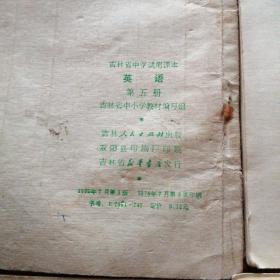 吉林省中学试用课本
英语
第五册
吉林省中小学教材编写组
吉林人民出版社出版
双阳县印刷厂印刷
吉林省新华书店发行
1976年7月第1版 1976年7月第1次印刷
定价